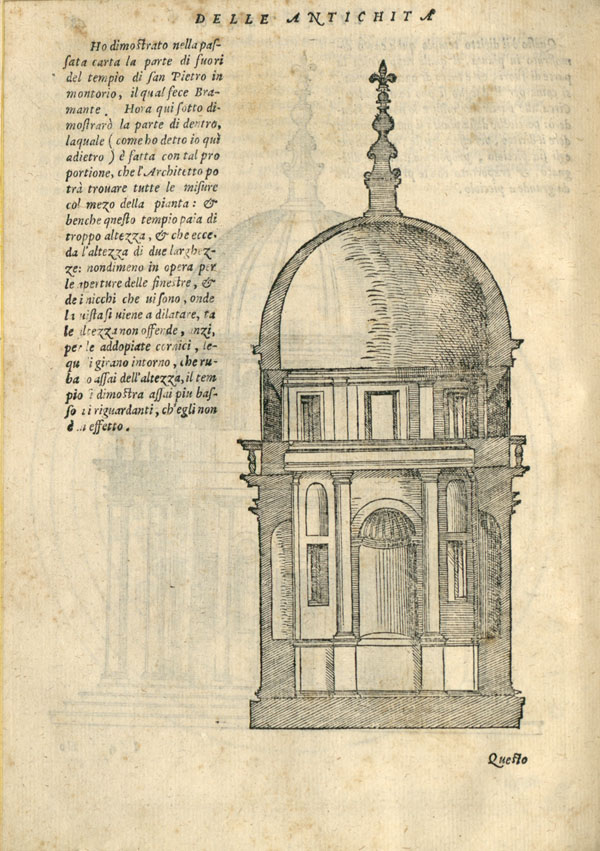 DELLE ANTICHITA
Ho dimostrato nella pas-
sata carta la parte di fuori
del tempio di san Pietro in
montorio, il qual fece Bra-
mante. Hora qui sotto di-
mostrarò la parte di dentro,
laquale (come ho detto io quì
adietro) è fatta con tal pro
portione, che l'Architetto po
trà trouare tutte le misure
col mezo della pianta: &
benche questo tempio paia di
troppo altezza, & che ecce-
da l'altezza di due larghez-
ze: nondimeno in opera per
le aperture delle finestre, &
de i nicchi che ui sono, onde
la uista si uiene a dilatare, ta
le altezza non offende, anzi,
per le addopiate cornici, le-
qu i girano intorno, che ru-
ba o assai dell'altezza, il tem
pio si dimostra assai piu bas-
so a i riguardanti, ch'egli non
è in effetto.
Questo